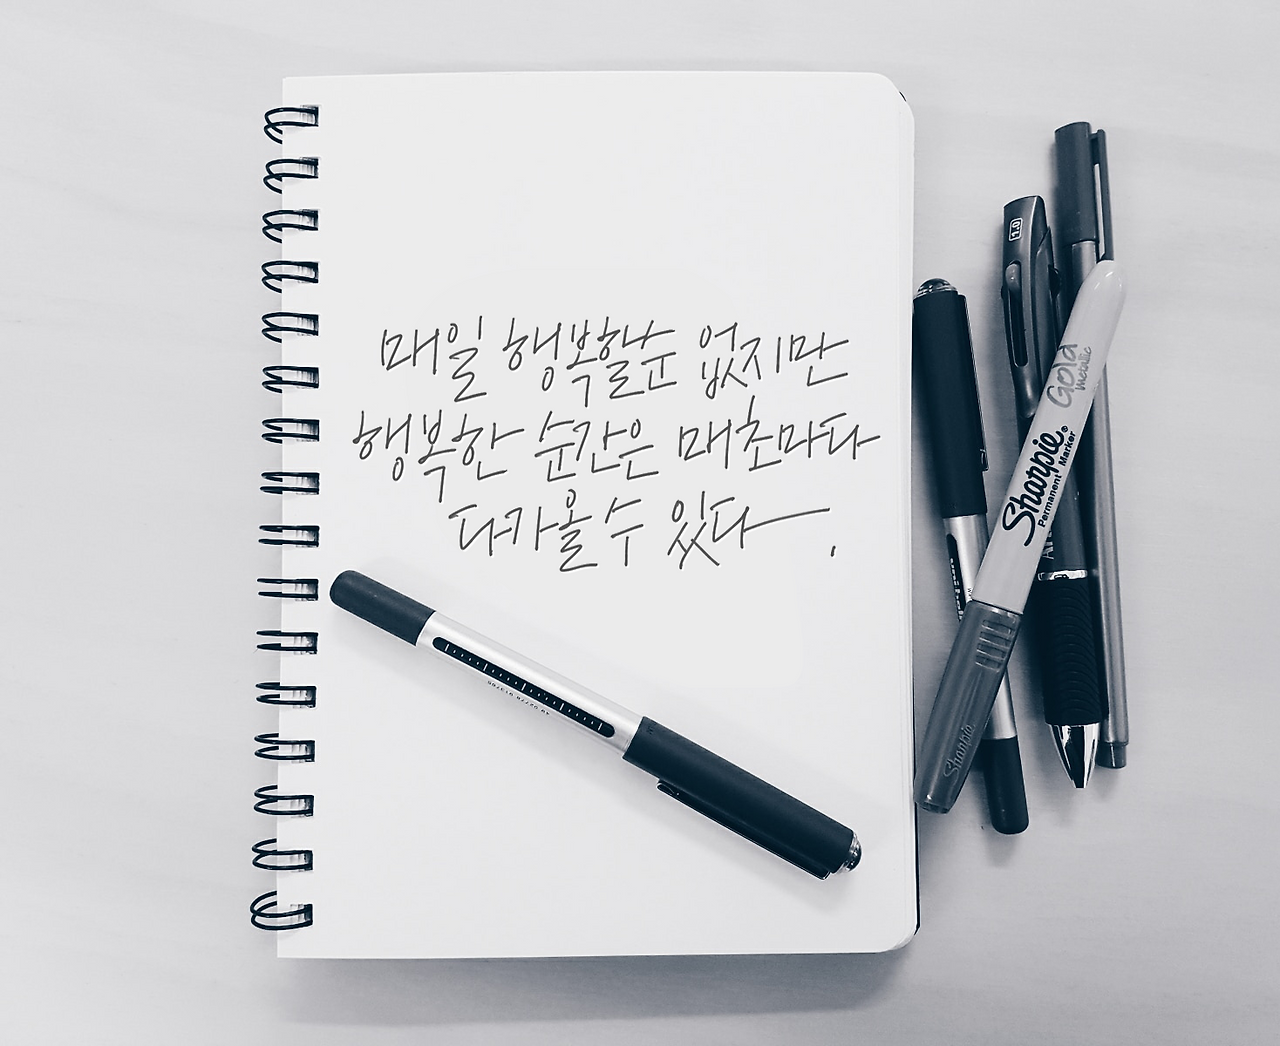 매일 행복할순 없지만
행복한 순간은 매초마다
다가올 수 있다.
1.0
Gold
metallic
Sharpie®
Permanent Marker
Sharpie